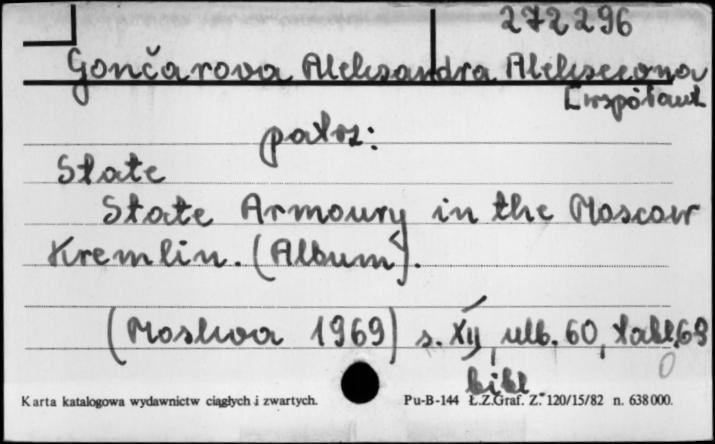 272296
Gončarova Aleksandra Alekseevna
[współaut
patrz:
State
State Armoury in the Moscow
Kremlin. (Album).
(Moskva 1969) s. XIJ, nlb. 60, tabl. 68
bibl
0
Karta katalogowa wydawnictw ciągłych i zwartych.
Pu-B-144 Ł.Z.Graf. Z. 120/15/82 n. 638000.